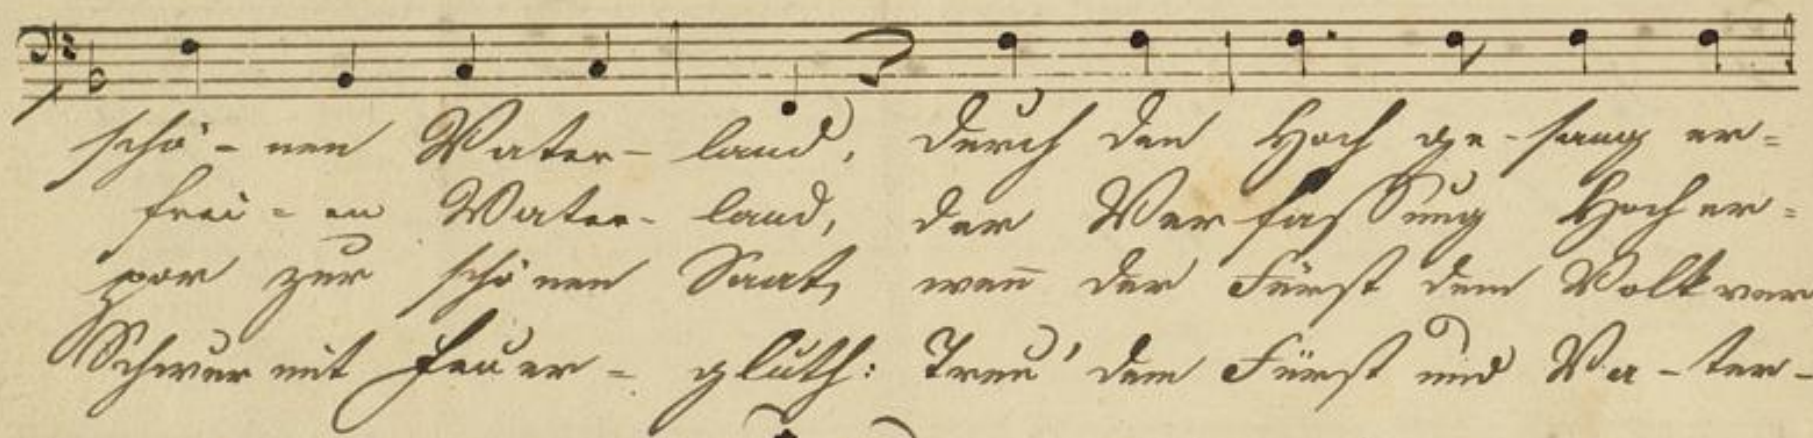 schö - nen Vater - land, durch den Hoch ge - sang er =
frei = en Vater - land, der Ver fassung Hoch er =
por zur schö nen Saat, wen̄ der Fürst dem Volk ver
Schwur mit Feuer = gluth: Treu' dem Fürst und Va - ter -